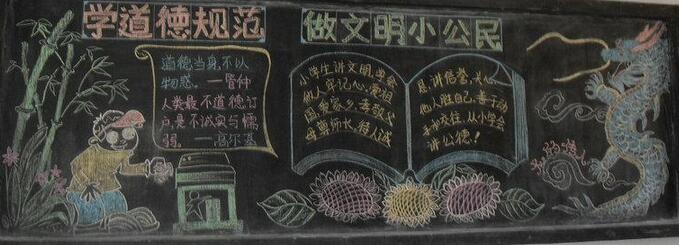 学道德规范
做文明小公民
道德当身,不以
物惑。——管仲
人类最不道德订
户,是不诚实与懦
弱。——高尔基
小学生讲文明,尊容
他人牢记心,爱祖
国,爱家乡,孝敬父
母尊师长,待人诚
恳,讲信誉,关心
他人胜自己,善于动
手和交往,从小学会
讲公德!